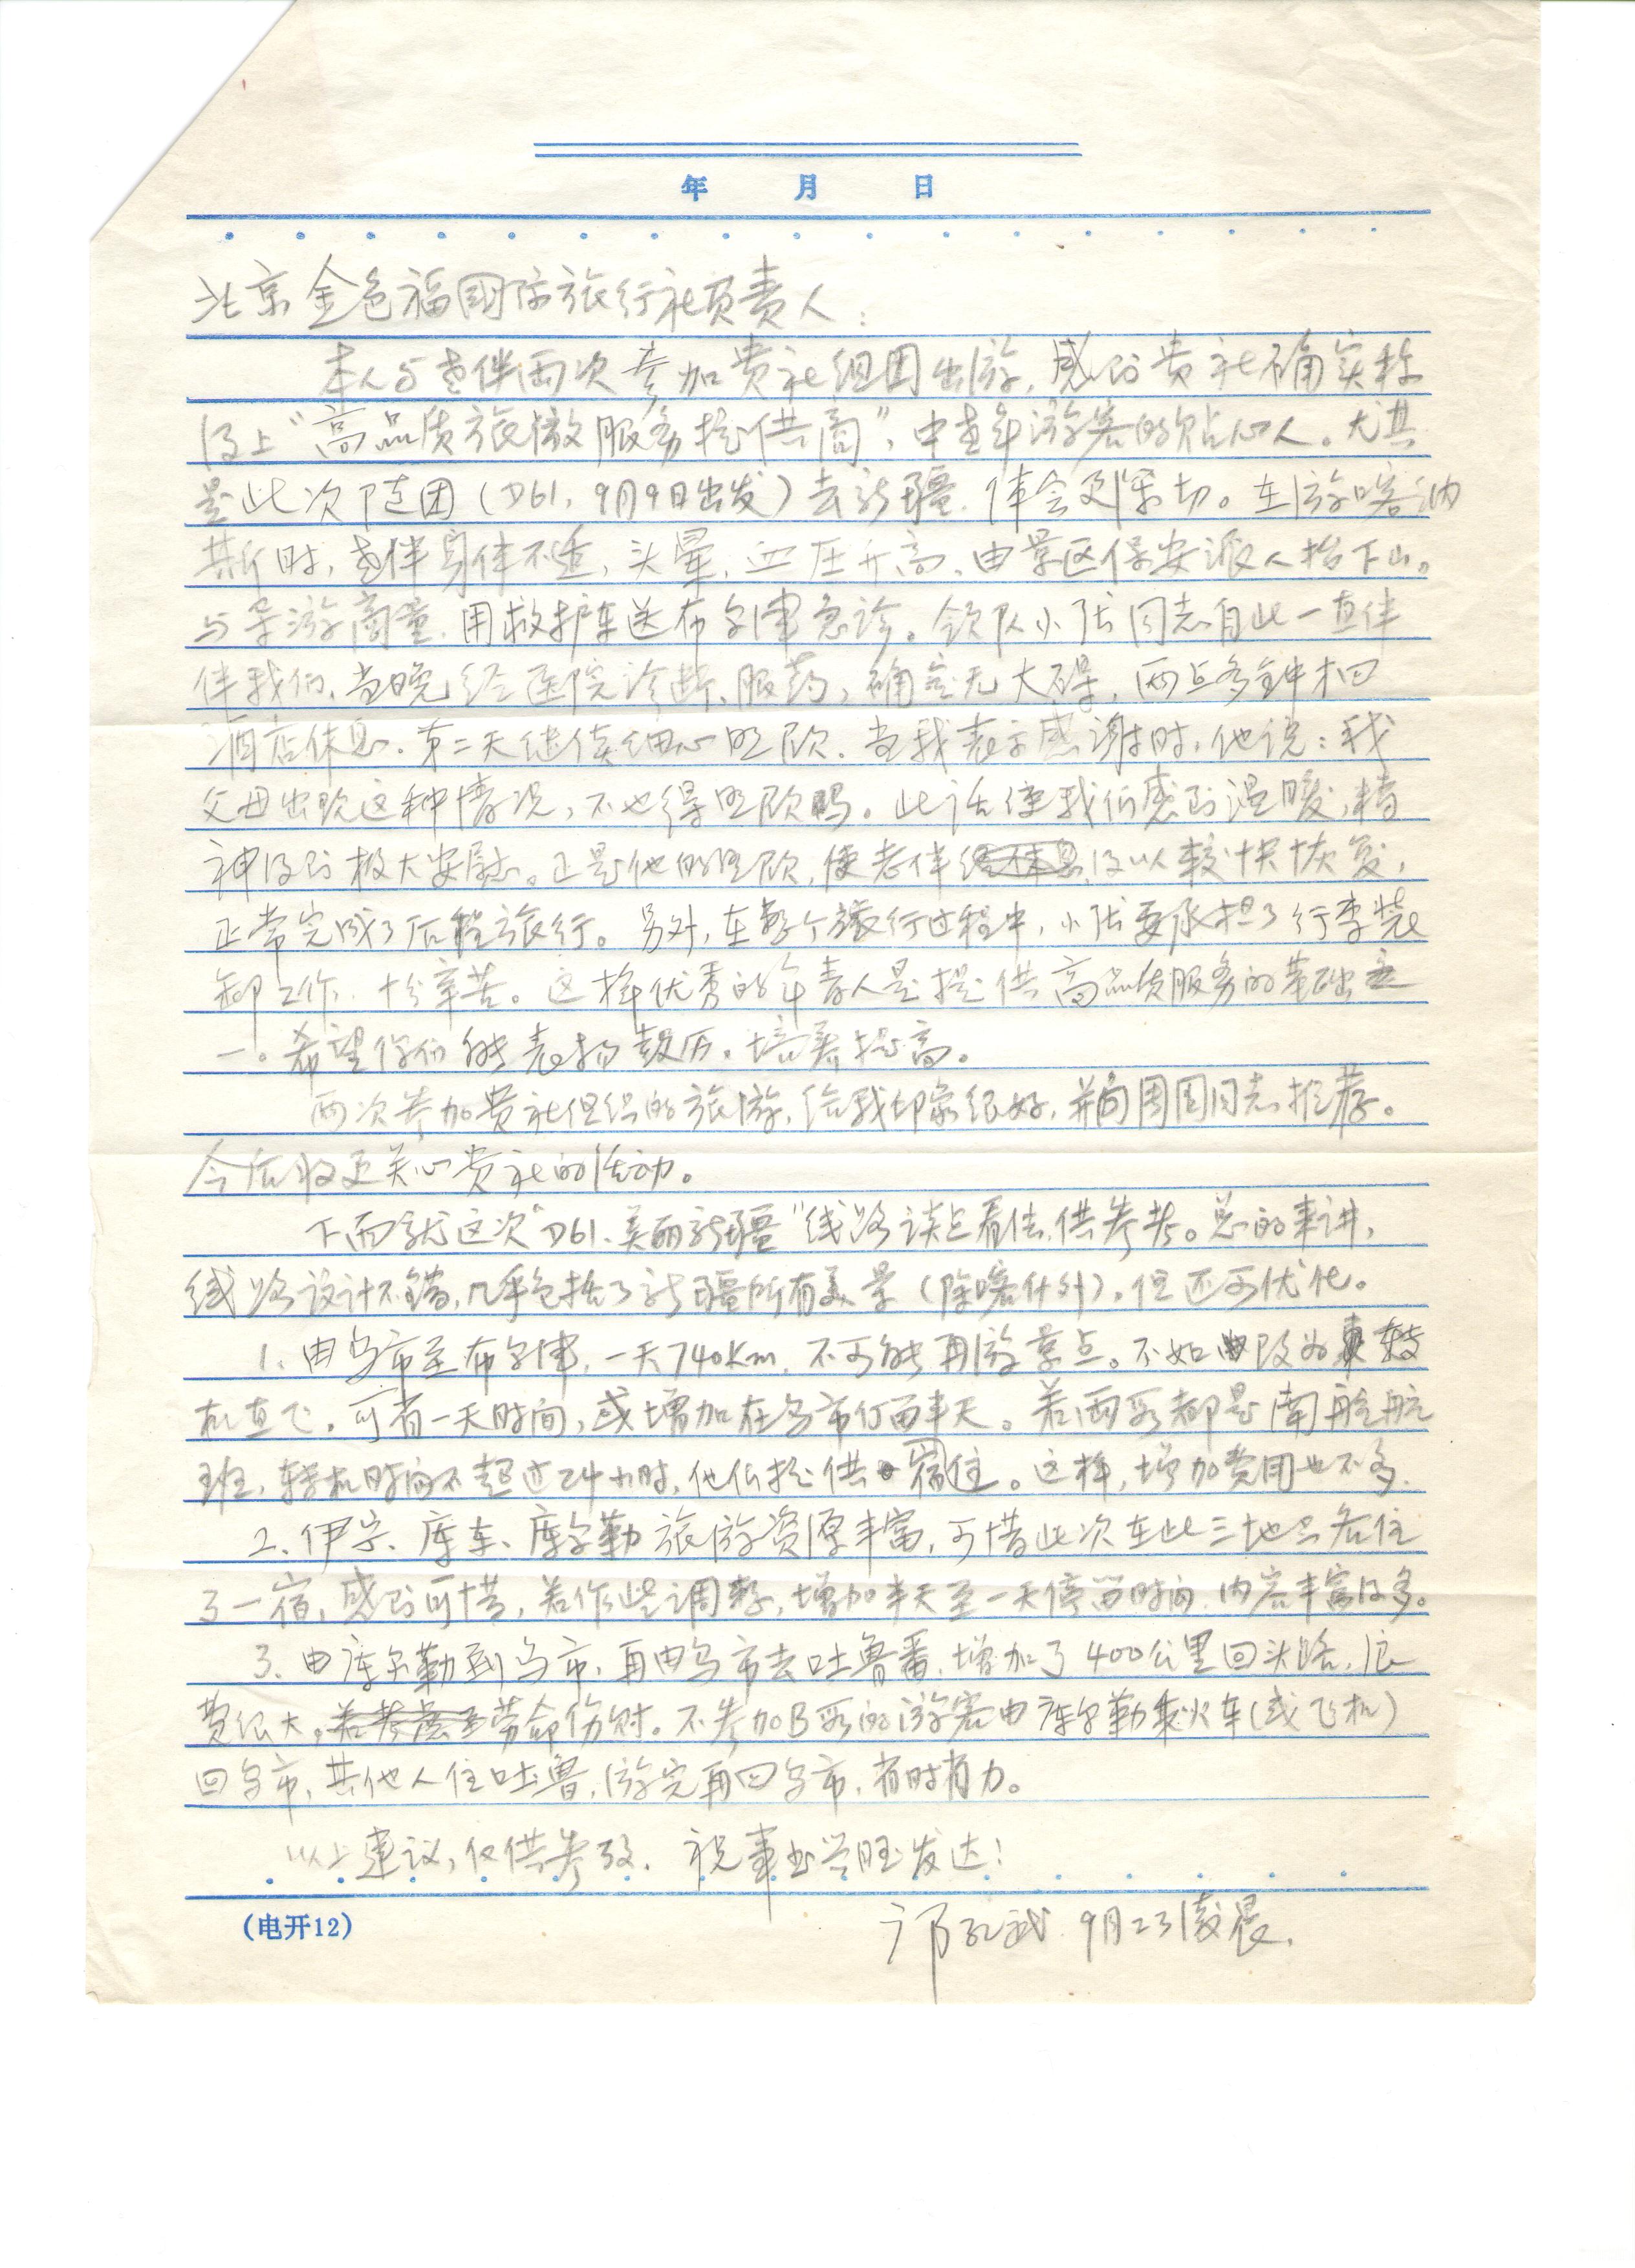 年 月 日
北京金色福国际旅行社负责人：
本人与老伴两次参加贵社组团出游，感到贵社确实称
得上“高品质旅游服务提供商”，中老年游客的贴心人。尤其
是此次随团（D61，9月9日出发）去新疆，体会更深切。在游喀纳
斯时，老伴身体不适，头晕，血压升高，由景区保安派人抬下山。
与导游商量，用救护车送布尔津急诊。领队小张同志自此一直伴
伴我们，当晚经医院诊断、服药，确定无大碍，两点多钟才回
酒店休息。第二天继续细心照顾。当我表示感谢时，他说：我
父母出现这种情况，不也得照顾吗。此话使我们感到温暖，精
神得到极大安慰。正是他的照顾，使老伴得以较快恢复，
正常完成了后程旅行。另外，在整个旅行过程中，小张要承担了行李装
卸工作，十分辛苦。这样优秀的年青人是提供高品质服务的基础之
一。希望你们能表扬鼓历，培养提高。
两次参加贵社组织的旅游，给我印象很好，并向周围同志推荐。
今后将更关心贵社的活动。
下面就这次“D61、美丽新疆”线路谈点看法，供参考。总的来讲，
线路设计不错，几乎包括了新疆所有美景（除喀什外），但还可优化。
1、由乌市至布尔津，一天740Km，不可能再游景点。不如改为转
机直飞，可省一天时间，或增加在乌市停留半天。若两段都是南航航
班，转机时间不超过24小时，他们提供宿住。这样，增加费用也不多。
2、伊宁、库车、库尔勒旅游资源丰富，可惜此次在此三地只各住
了一宿，感到可惜，若作些调整，增加半天至一天停留时间，内容丰富得多。
3、由库尔勒到乌市，再由乌市去吐鲁番，增加了400公里回头路，浪
费很大。劳命伤财。不参加B段的游客由库尔勒乘火车（或飞机）
回乌市，其他人住吐鲁，游完再回乌市，省时省力。
以上建议，仅供参考。祝事业兴旺发达！
（电开12）
9月23凌晨.